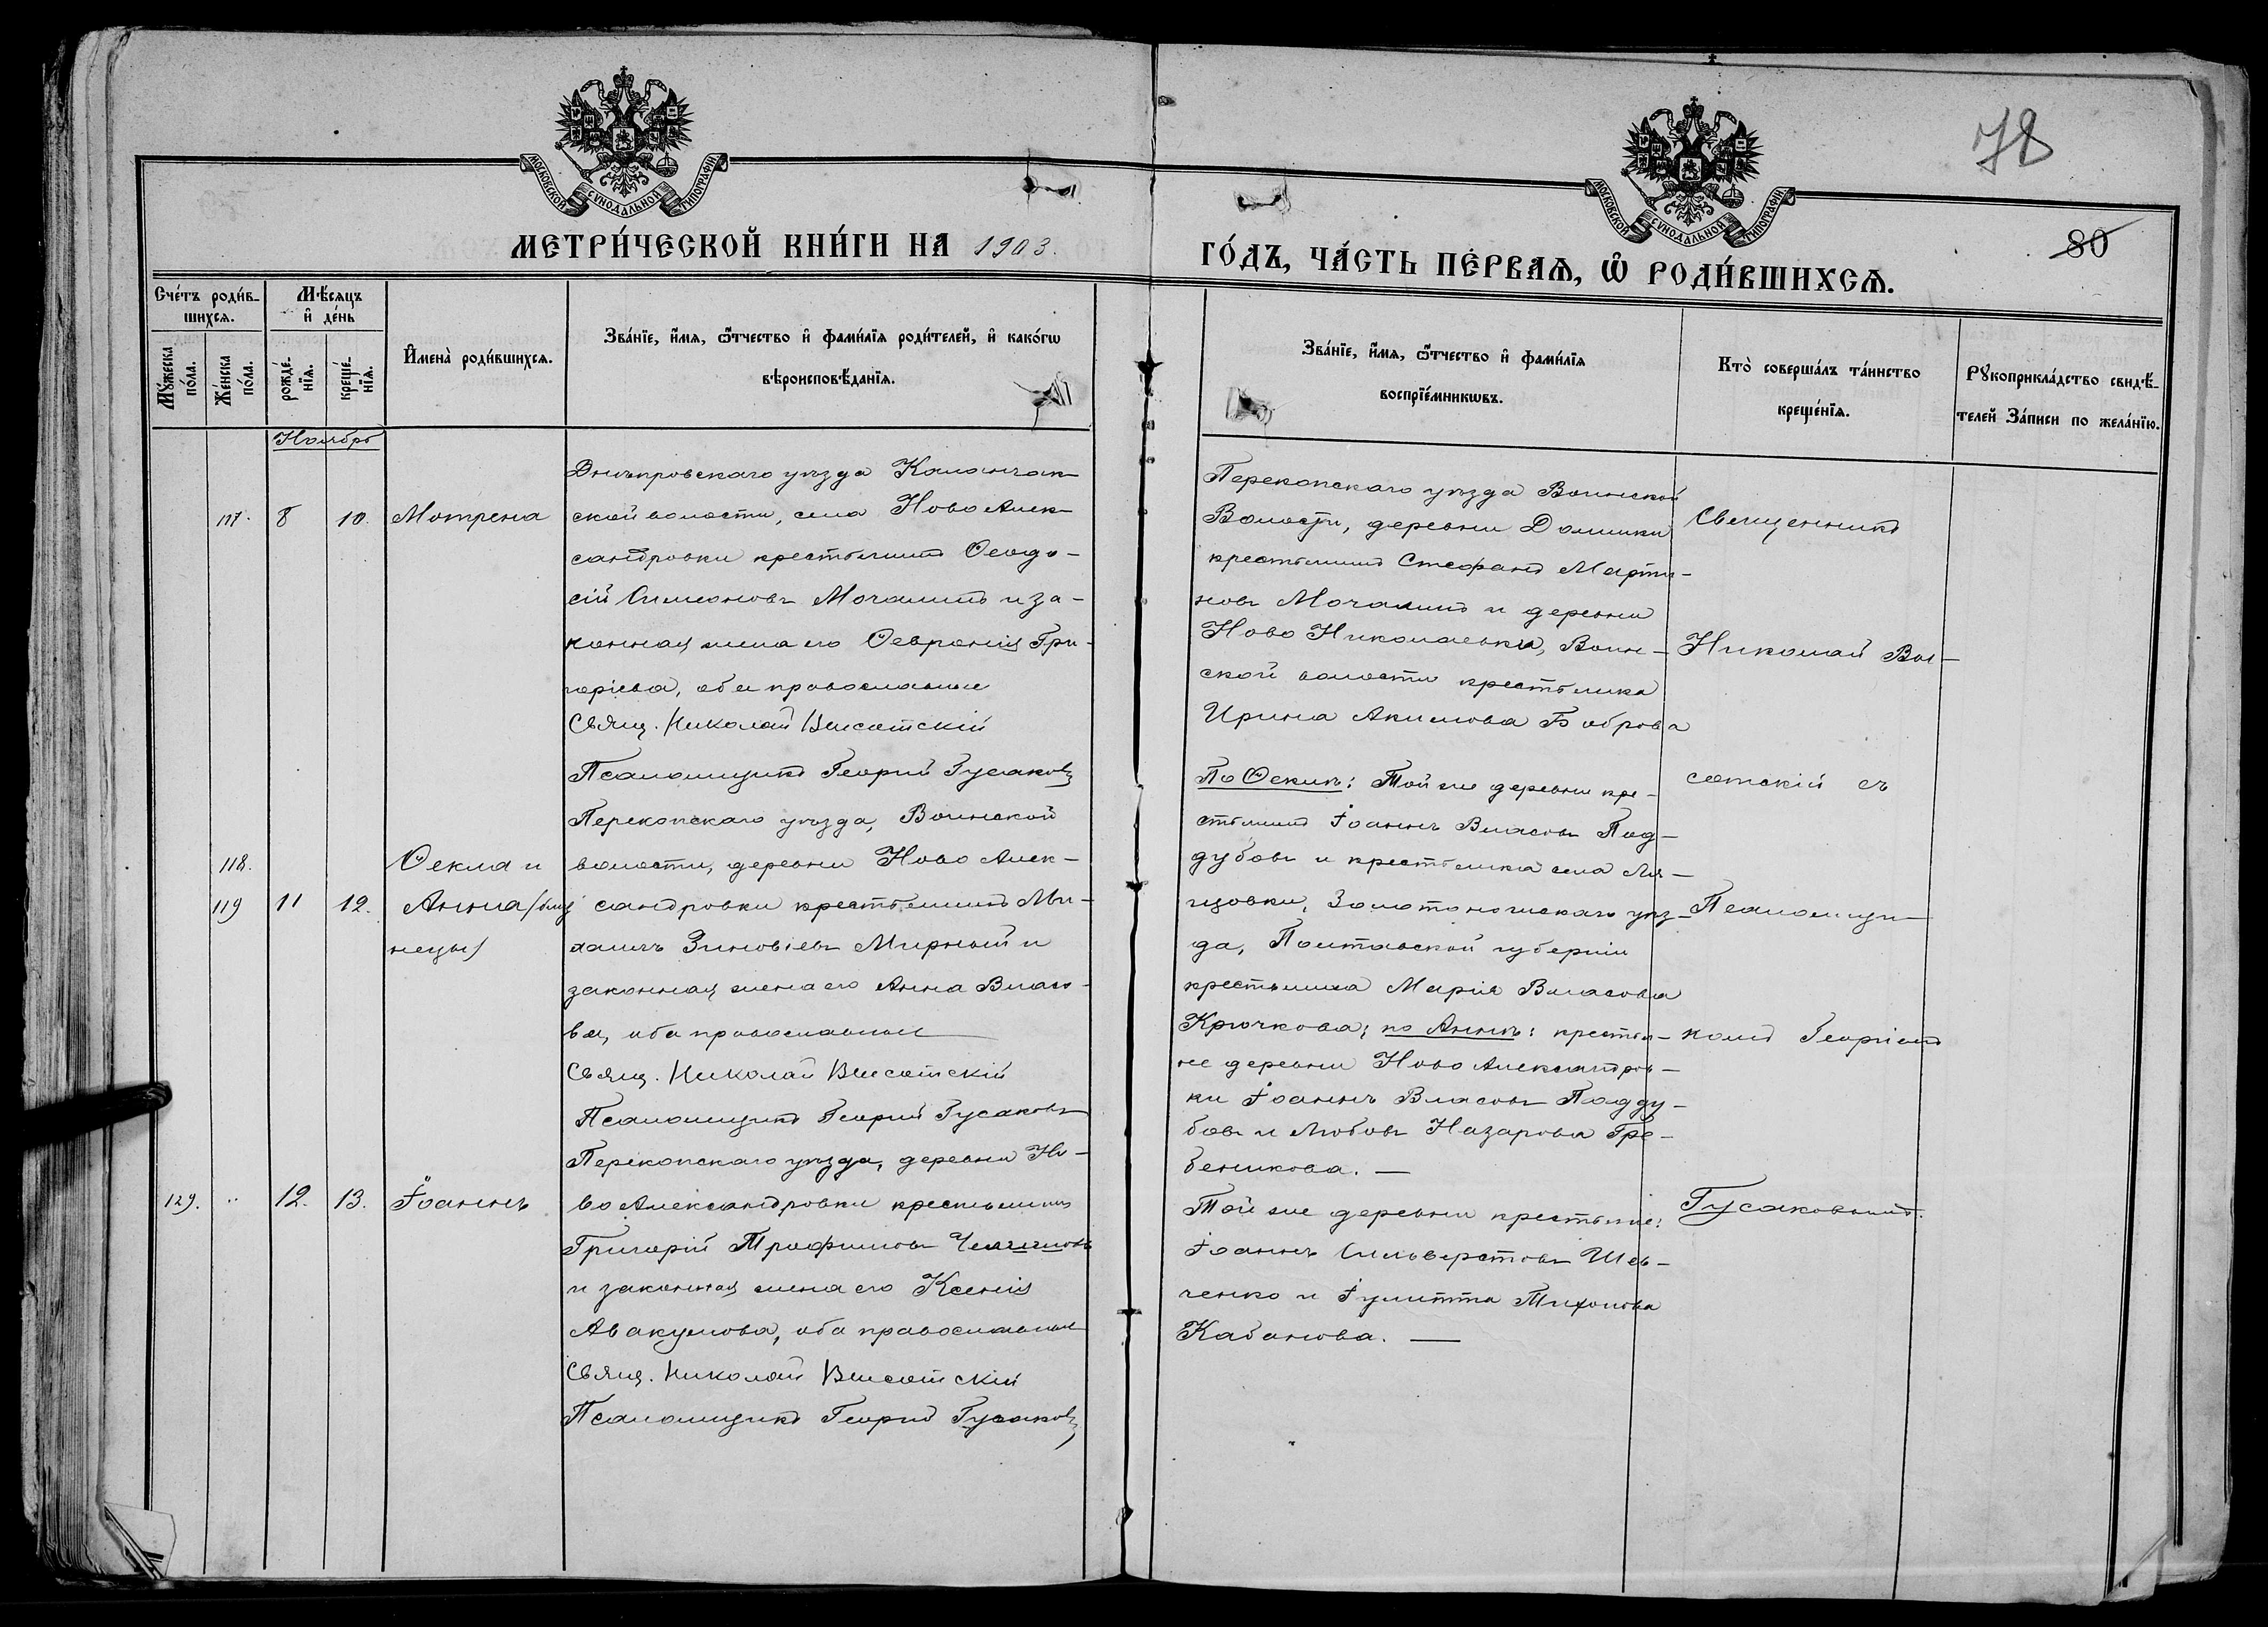 МОСКОВСКОЙ СѴНОДАЛЬНОЙ ТИПОГРАФІИ
МОСКОВСКОЙ СѴНОДАЛЬНОЙ ТИПОГРАФІИ
78
80
МЕТРИ́ЧЕСКОЙ КНИ́ГИ НА 1903.
ГО́ДЪ, ЧА́СТЬ ПЕ́РВАѦ, Ѽ РОДИ́ВШИХСѦ.
Сче́тъ роди́в-
шихсѧ.
Мꙋ́жеска по́ла.
Же́нска по́ла.
Мѣ́сѧцъ и҆ де́нь
рожде́-
нїѧ.
креще́-
нїѧ.
И҆мена̀ роди́вшихсѧ.
Зва́нїе, и҆́мѧ, ѻ҆́тчество и҆ фами́лїѧ роди́телей, и҆ како́гѡ
вѣроисповѣ́данїѧ.
Зва́нїе, и҆́мѧ, ѻ҆́тчество и҆ фами́лїѧ
воспрїе́мникѡвъ.
Кто̀ соверша́лъ та́инство
креще́нїѧ.
Рꙋкоприкла́дство свидѣ́-
телей За́писи по жела́нїю.
Ноябрь
117. 8 10. Мотрена
Днѣпровскаго уѣзда Каланчак-
ской волости, села Ново Алек-
сандровки крестьянинъ Ѳеодо-
сій Симеоновъ Мочалинъ и за-
конная жена его Ѳевронія Гри-
горіева, оба православные
Свящ. Николай Высотскій
Псаломщикъ Георгій Гусаковъ
Перекопскаго уѣзда Воинской
Волости, деревни Домники
крестьянинъ Стефанъ Марти-
новъ Мочалинъ и деревни
Ново Николаевки, Воин-
ской волости крестьянка
Ирина Акимова Боброва
Священникъ
Николай Вы-
сотскій съ
Псаломщи-
комъ Георгіемъ
Гусаковымъ.
118. Ѳекла и
119 11 12. Анна (близ
нецы)
Перекопскаго уѣзда, Воинской
волости, деревни Ново Алек-
сандровки крестьянинъ Ми-
хаилъ Зиновіевъ Мирный и
законная жена его Анна Власо-
ва, оба православные
Свящ. Николай Высотскій
Псаломщикъ Георгій Гусаковъ
По Ѳеклѣ: Той же деревни кре-
стьянинъ Іоаннъ Власовъ Под-
дубовъ и крестьянка села Ля-
щовки, Золотоношскаго уѣз-
да, Полтавской губерніи
крестьянка Марія Власова
Крючкова; по Аннѣ: крестья-
не деревни Ново Александров-
ки Іоаннъ Власовъ Подду-
бовъ и Любовь Назарова Гре-
беникова.
129. " 12. 13. Іоаннъ
Перекопскаго уѣзда, деревни Но-
во Александровки крестьянинъ
Григорій Трофимовъ
и законная жена его Ксенія
Авакумова, оба православные
Свящ. Николай Высотскій
Псаломщикъ Георгій Гусаковъ
Той же деревни крестьяне:
Іоаннъ Сильверстовъ Шев-
ченко и Іулитта Тихонова
Кабанова.